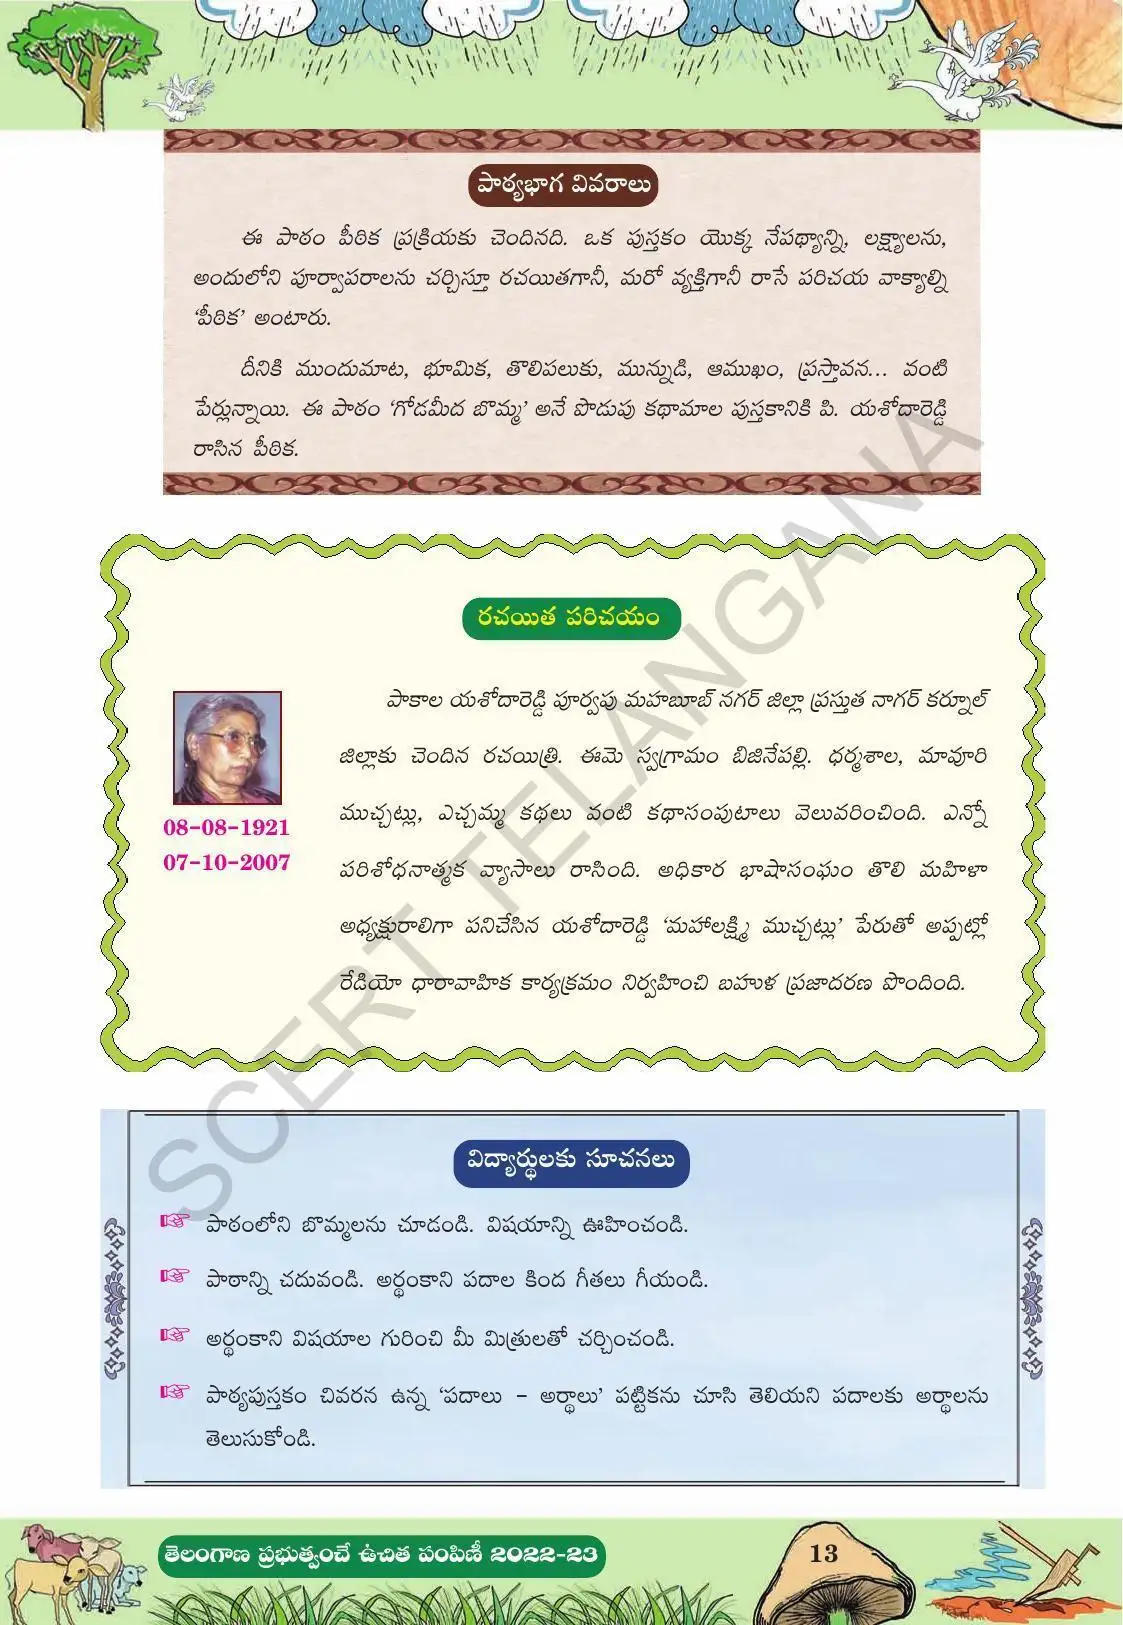 పాఠ్యభాగ వివరాలు
ఈ పాఠం పీఠిక ప్రక్రియకు చెందినది. ఒక పుస్తకం యొక్క నేపథ్యాన్ని, లక్ష్యాలను,
అందులోని పూర్వాపరాలను చర్చిస్తూ రచయితగానీ, మరో వ్యక్తిగానీ రాసే పరిచయ వాక్యాల్ని
‘పీఠిక’ అంటారు.
దీనికి ముందుమాట, భూమిక, తొలిపలుకు, మున్నుడి, ఆముఖం, ప్రస్తావన... వంటి
పేర్లున్నాయి. ఈ పాఠం ‘గోడమీద బొమ్మ’ అనే పొడుపు కథామాల పుస్తకానికి పి. యశోదారెడ్డి
రాసిన పీఠిక.
రచయిత పరిచయం
పాకాల యశోదారెడ్డి పూర్వపు మహబూబ్ నగర్ జిల్లా ప్రస్తుత నాగర్ కర్నూల్
జిల్లాకు చెందిన రచయిత్రి. ఈమె స్వగ్రామం బిజినేపల్లి. ధర్మశాల, మావూరి
ముచ్చట్లు, ఎచ్చమ్మ కథలు వంటి కథాసంపుటాలు వెలువరించింది. ఎన్నో
పరిశోధనాత్మక వ్యాసాలు రాసింది. అధికార భాషాసంఘం తొలి మహిళా
అధ్యక్షురాలిగా పనిచేసిన యశోదారెడ్డి ‘మహాలక్ష్మి ముచ్చట్లు’ పేరుతో అప్పట్లో
రేడియో ధారావాహిక కార్యక్రమం నిర్వహించి బహుళ ప్రజాదరణ పొందింది.
08-08-1921
07-10-2007
విద్యార్థులకు సూచనలు
పాఠంలోని బొమ్మలను చూడండి. విషయాన్ని ఊహించండి.
పాఠాన్ని చదువండి. అర్థంకాని పదాల కింద గీతలు గీయండి.
అర్థంకాని విషయాల గురించి మీ మిత్రులతో చర్చించండి.
పాఠ్యపుస్తకం చివరన ఉన్న ‘పదాలు - అర్థాలు’ పట్టికను చూసి తెలియని పదాలకు అర్థాలను
తెలుసుకోండి.
SCERT TELANGANA
తెలంగాణ ప్రభుత్వంచే ఉచిత పంపిణీ 2022-23
13